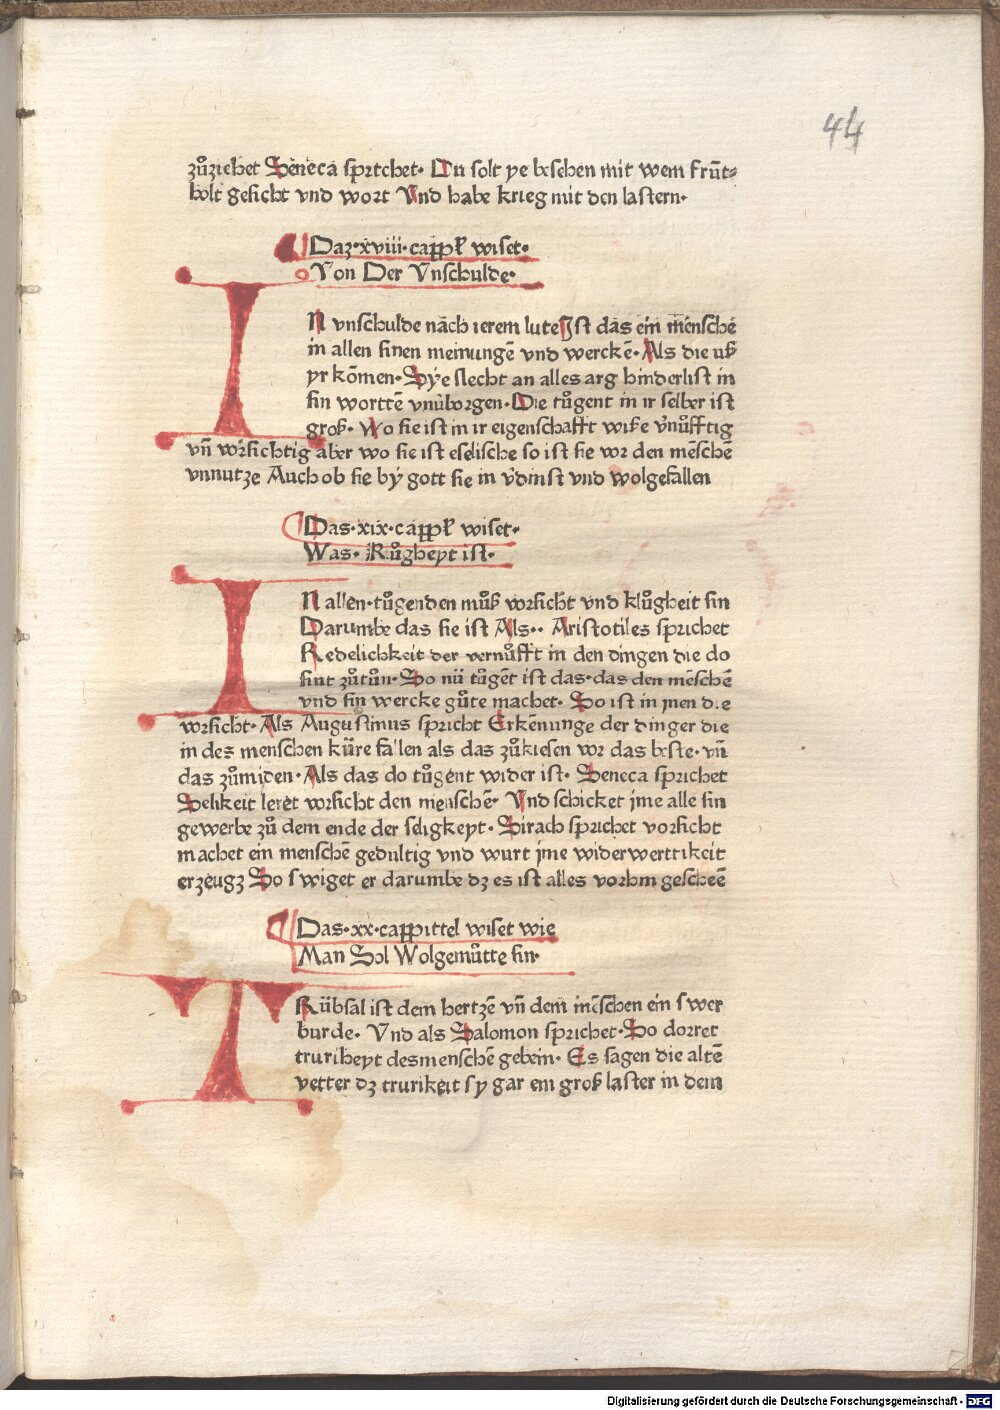 44
zůziehet Seneca sprichet· Du solt ye besehen mit wem frūt⸗
holt gesicht vnd wort Vnd habe krieg mit den lastern·
Daz·xviii·cappl̄ wiset·
Von Der Vnschulde·
IN vnschulde nach ierem lute Jst das ein mēnschē
in allen sinen meinungē vnd werckē· Als die uß
yr kōmen· Sye slecht an alles arg hinderlist in
sin worttē vnūborgen· Die tůgent in ir selber ist
groß· Wo sie ist in ir eigenschafft wiße v̄nůfftig
vn̄ vorsichtig aber wo sie ist eselische so ist sie vor den mēschē
vnnutze Auch ob sie bý gott sie in v̄dinst vnd wolgefallen
Das·xix·cappl̄ wiset·
Was· Klůgheyt ist·
IN allen·tůgenden můß vorsicht vnd klůgheit sin
Darumbe das sie ist Als·· Aristotiles sprichet
Redelichkeit der vernůfft in den dingen die do
sint zůtůn· So nū tůgēt ist das·das den mēschē
vnd sin wercke gůte machet· So ist in jnen die
vorsicht· Als Augustinus spricht Erkēnunge der dinger die
in des menschen kūre fallen als das zůkiesen vor das beste· vn̄
das zůmiden· Als das do tůgent wider ist· Seneca sprichet
Selikeit leret vorsicht den menschē· Vnd schicket jme alle sin
gewerbe zů dem ende der seligkeyt· Sirach sprichet vorsicht
machet ein menschē gedultig vnd wurt jme widerwerttikeit
erzeugz So swiget er darumbe dz es ist alles vorhin gescheē
Das·xx·cappittel wiset wie
Man Sol Wolgemůtte sin·
TRübsal ist dem hertzē vn̄ dem mēschen ein swer
burde· Vnd als Salomon sprichet· So dorret
truriheyt desmenschē gebein· Es sagen die altē
vetter dz trurikeit sy gar ein groß laster in dem
Digitalisierung gefördert durch die Deutsche Forschungsgemeinschaft - DFG